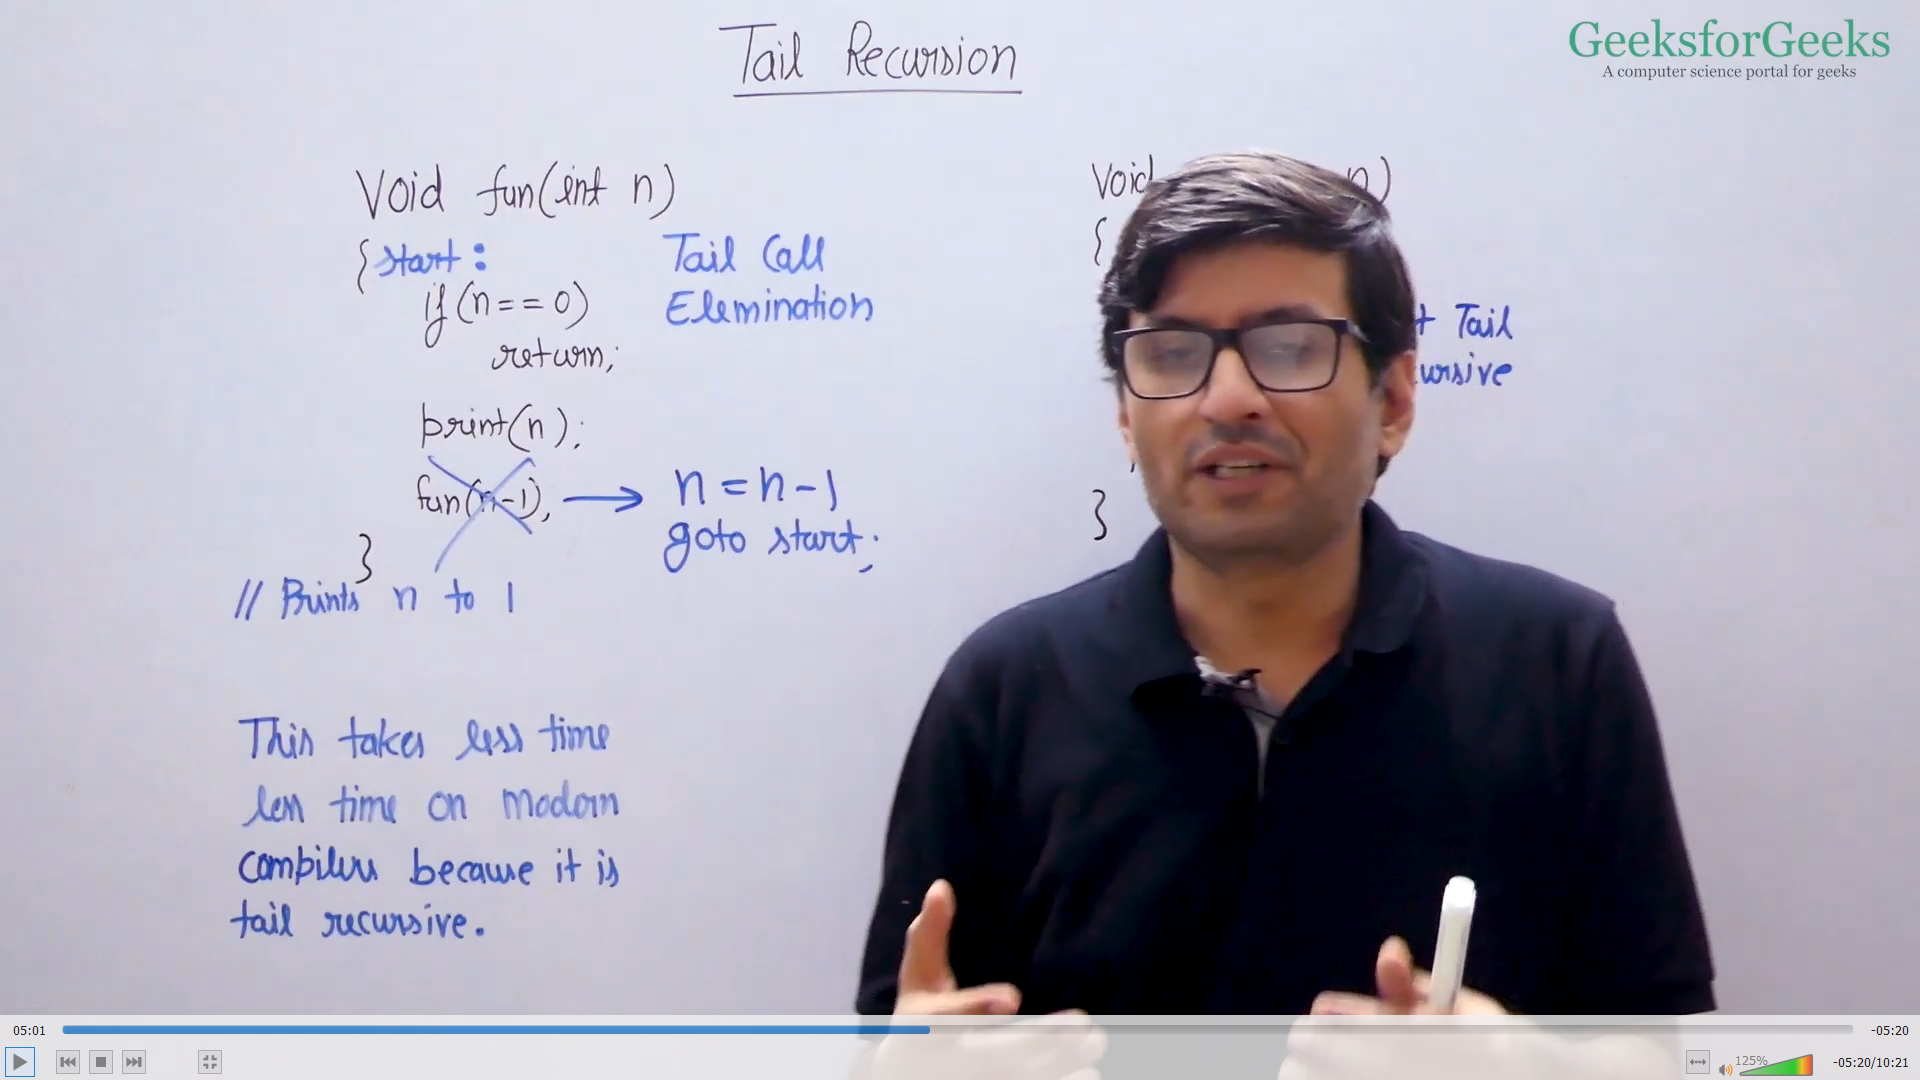 Tail Recursion
GeeksforGeeks
A computer science portal for geeks
Void fun(int n)
{start:
if(n==0)
return;
print(n);
fun(n-1);
}
// Prints n to 1
Tail Call
Elemination
n=n-1
goto start;
This takes less time
less time on modern
compilers because it is
tail recursive.
Void n)
{
Tail
}
05:01
-05:20
125%
-05:20/10:21